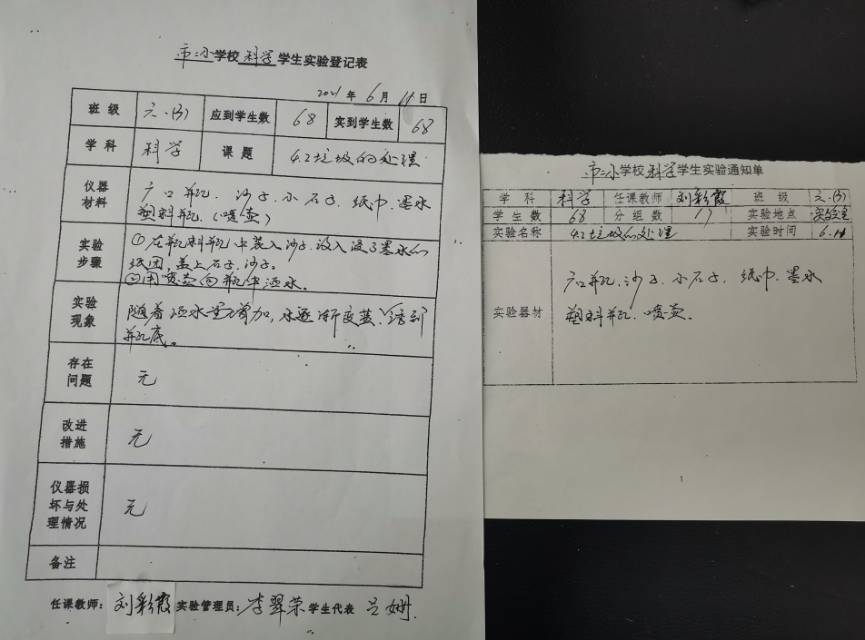 市二小学校科学学生实验登记表
2021年6月11日
班级 六.(3) 应到学生数 68 实到学生数 68
学科 科学 课题 4.2垃圾的处理
仪器材料 广口瓶、沙子、小石子、纸巾、墨水
塑料瓶、(喷壶)
实验步骤 ①在瓶料瓶中装入沙子,放入浸了墨水的
纸团,盖上石子、沙子。
②用喷壶向瓶中洒水。
实验现象 随着洒水量增加,水逐渐变蓝、
瓶底。
存在问题 无
改进措施 无
仪器损坏与处理情况 无
备注
任课教师:刘彩霞 实验管理员:李翠荣 学生代表 吕姗
市二小学校科学学生实验通知单
学科 科学 任课教师 刘彩霞 班级 六.(3)
学生数 68 分组数 17 实验地点 实验室
实验名称 4.2垃圾的处理 实验时间 6.11
实验器材 广口瓶、沙子、小石子、纸巾、墨水
塑料瓶、喷壶。
1